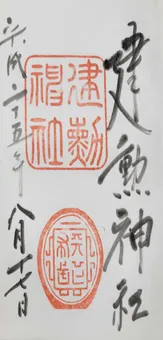 建勲神社
建勲
神社
平成二十五年
八月十七日